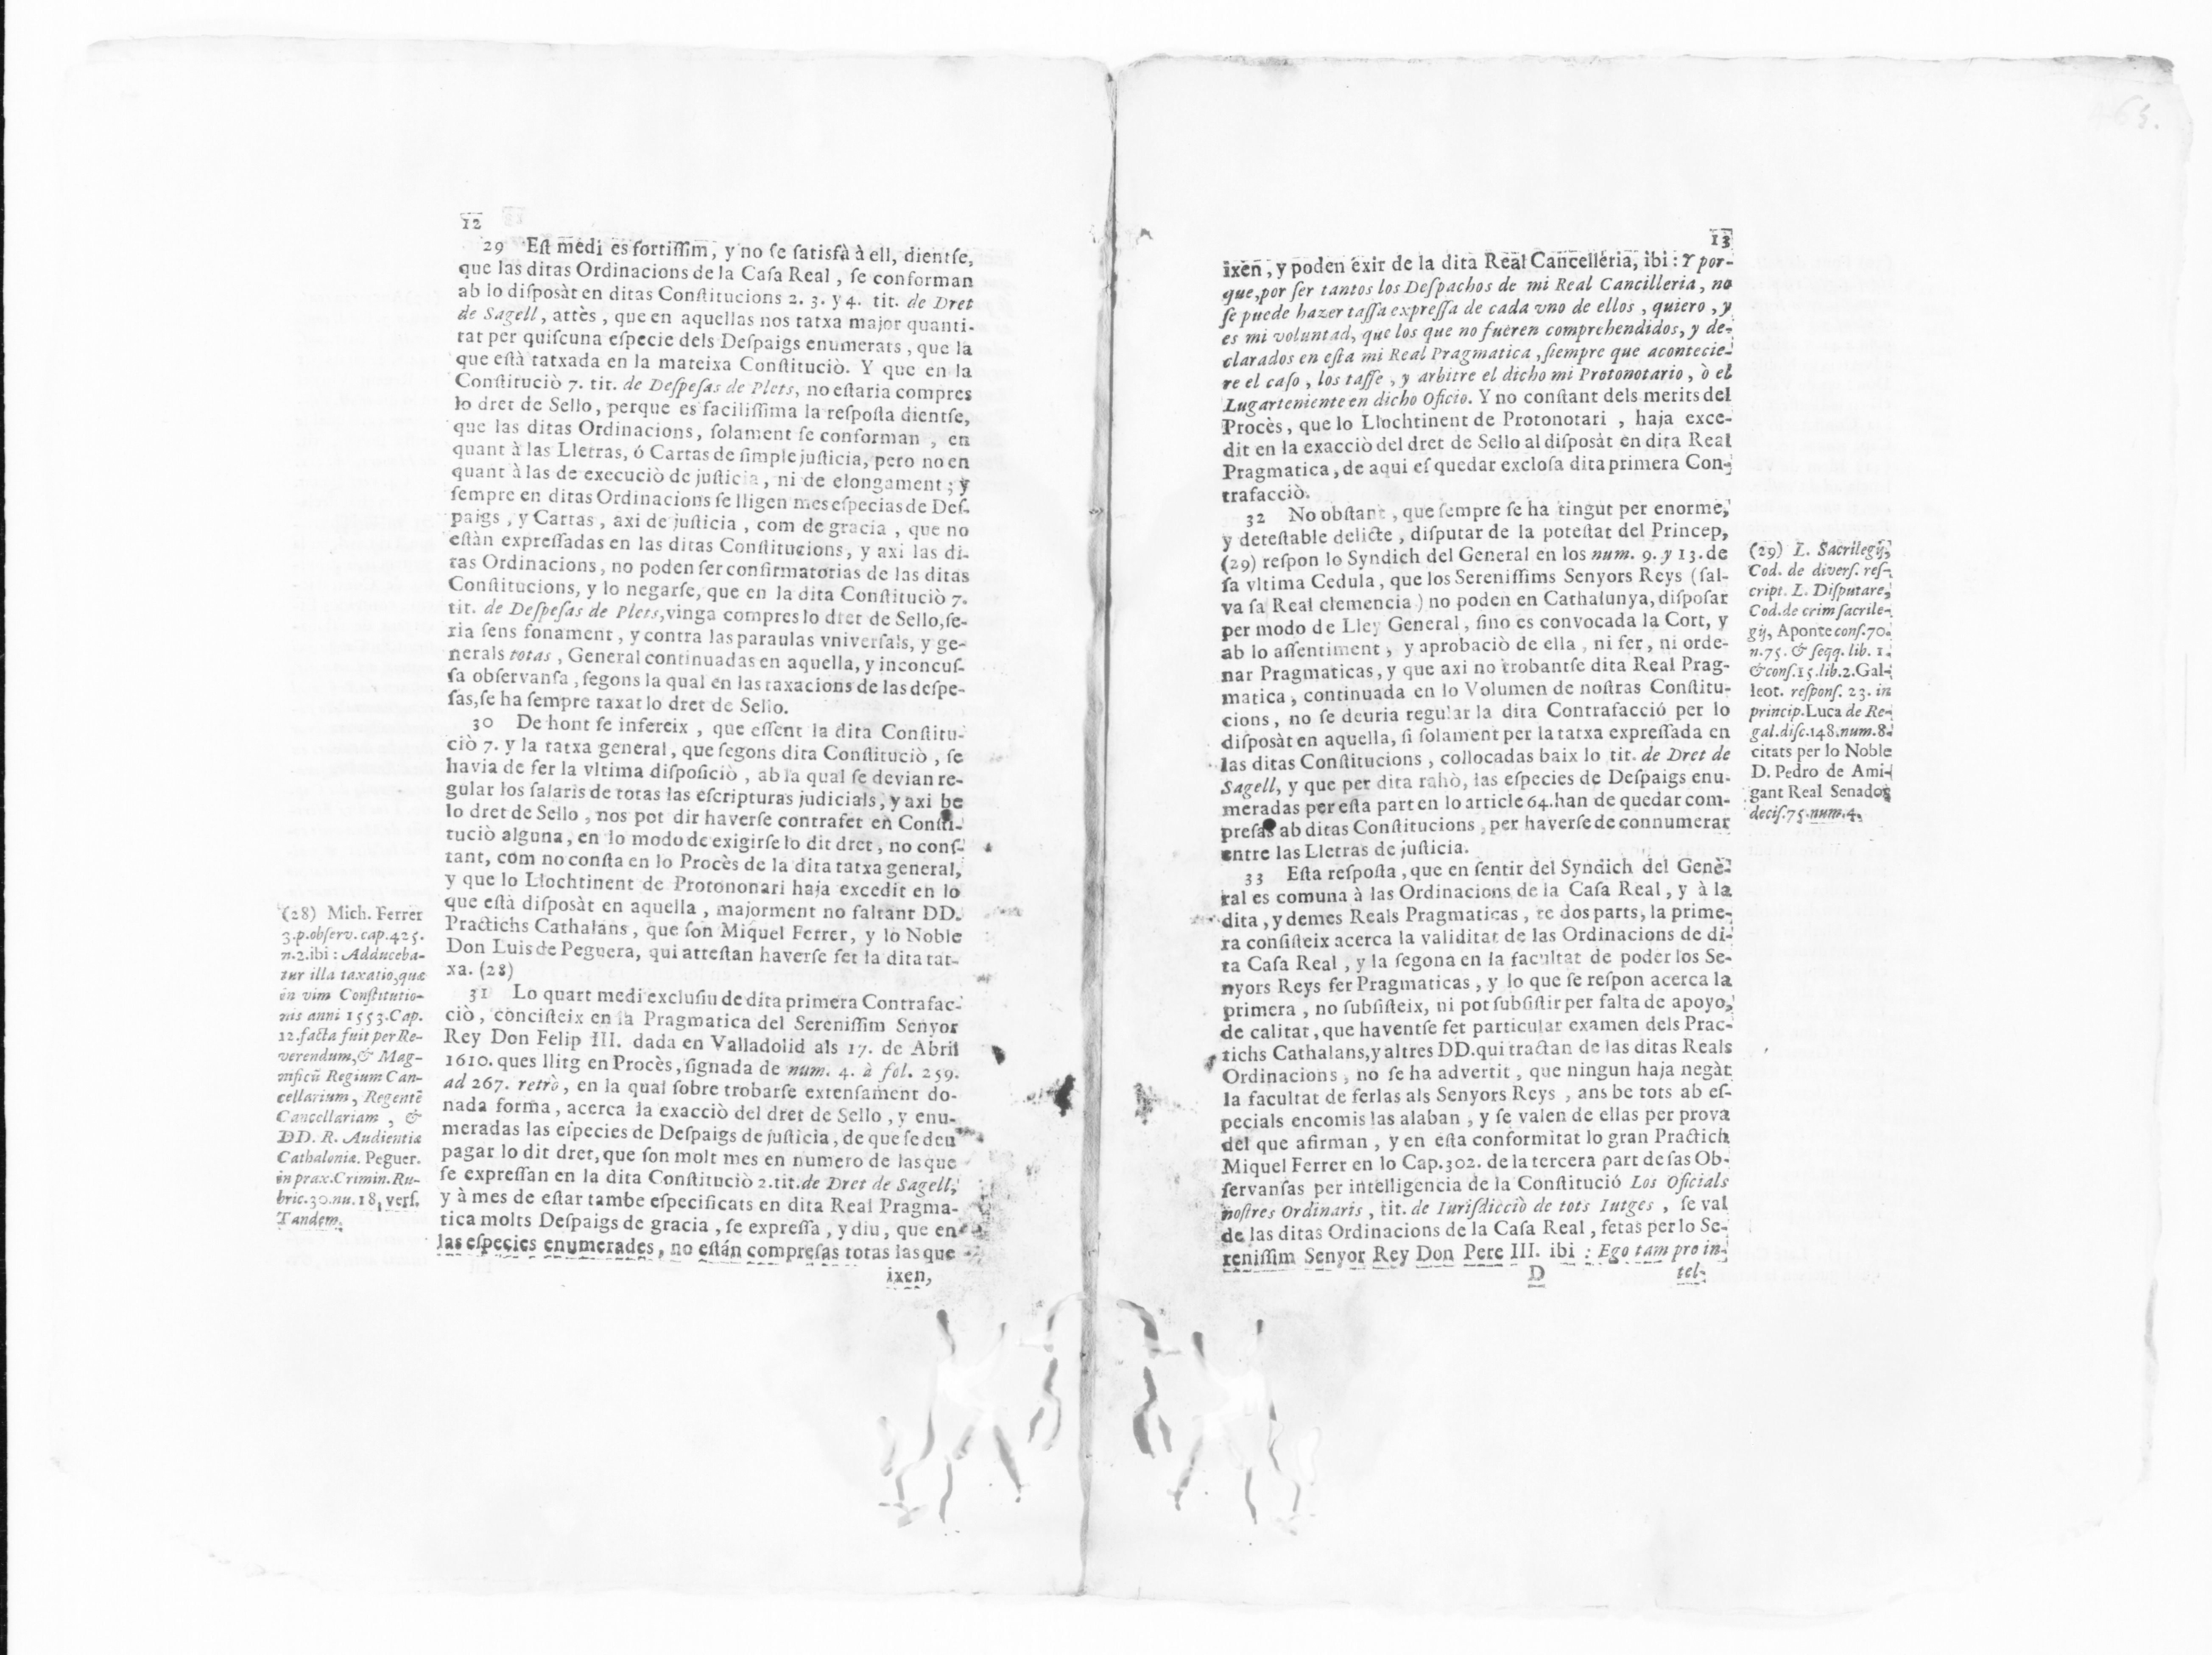 12
29 Eſt medi es fortiſſim, y no ſe ſatisfà à ell, dientſe,
que las ditas Ordinacions de la Caſa Real, ſe conforman
ab lo diſpoſàt en ditas Conſtitucions 2. 3. y 4. tit. de Dret
de Sagell, attès, que en aquellas nos tatxa major quanti-
tat per quiſcuna eſpecie dels Deſpaigs enumerats, que la
que eſtà tatxada en la mateixa Conſtituciò. Y que en la
Conſtituciò 7. tit. de Deſpeſas de Plets, no eſtaria compres
lo dret de Sello, perque es faciliſſima la reſpoſta dientſe,
que las ditas Ordinacions, ſolament ſe conforman, en
quant à las Lletras, ó Cartas de ſimple juſticia, pero no en
quant à las de execuciò de juſticia, ni de elongament; y
ſempre en ditas Ordinacions ſe lligen mes eſpecias de Deſ-
paigs, y Cartas, axi de juſticia, com de gracia, que no
eſtàn expreſſadas en las ditas Conſtitucions, y axi las di-
tas Ordinacions, no poden ſer confirmatorias de las ditas
Conſtitucions, y lo negarſe, que en la dita Conſtituciò 7.
tit. de Deſpeſas de Plets, vinga compres lo dret de Sello, ſe-
ria ſens fonament, y contra las paraulas vniverſals, y ge-
nerals totas, General continuadas en aquella, y inconcuſ-
ſa obſervanſa, ſegons la qual en las taxacions de las deſpe-
ſas, ſe ha ſempre taxat lo dret de Sello.
30 De hont ſe infereix, que eſſent la dita Conſtitu-
ciò 7. y la tatxa general, que ſegons dita Conſtituciò, ſe
havia de fer la vltima diſpoſiciò, ab la qual ſe devian re-
gular los ſalaris de totas las eſcripturas judicials, y axi be
lo dret de Sello, nos pot dir haverſe contrafet en Conſti-
tuciò alguna, en lo modo de exigirſe lo dit dret, no conſ-
tant, com no conſta en lo Procès de la dita tatxa general,
y que lo Llochtinent de Protononari haja excedit en lo
que eſtà diſpoſàt en aquella, majorment no faltant DD.
Practichs Cathalans, que ſon Miquel Ferrer, y lo Noble
Don Luis de Peguera, qui atteſtan haverſe fet la dita tat-
xa. (28)
31 Lo quart medi excluſiu de dita primera Contrafac-
ciò, conciſteix en la Pragmatica del Sereniſſim Senyor
Rey Don Felip III. dada en Valladolid als 17. de Abril
1610. ques llitg en Procès, ſignada de num. 4. à fol. 259.
ad 267. retrò, en la qual ſobre trobarſe extenſament do-
nada forma, acerca la exacciò del dret de Sello, y enu-
meradas las eſpecies de Deſpaigs de juſticia, de que ſe deu
pagar lo dit dret, que ſon molt mes en numero de las que
ſe expreſſan en la dita Conſtituciò 2. tit. de Dret de Sagell,
y à mes de eſtar tambe eſpecificats en dita Real Pragma-
tica molts Deſpaigs de gracia, ſe expreſſa, y diu, que en
las eſpecies enumerades, no eſtán compreſas totas las que
ixen,
(28) Mich. Ferrer
3. p. obſerv. cap. 425.
n. 2. ibi: Adduceba-
tur illa taxatio, quæ
in vim Conſtitutio-
nis anni 1553. Cap.
12. facta fuit per Re-
verendum, & Mag-
nificũ Regium Can-
cellarium, Regentẽ
Cancellariam, &
DD. R. Audientiæ
Cathaloniæ. Peguer.
in prax. Crimin. Ru-
bric. 30. nu. 18, verſ.
Tandem.
13
ixen, y poden exir de la dita Real Cancelleria, ibi: Y por-
que, por ſer tantos los Deſpachos de mi Real Cancilleria, no
ſe puede hazer taſſa expreſſa de cada vno de ellos, quiero, y
es mi voluntad, que los que no fueren comprehendidos, y de-
clarados en eſta mi Real Pragmatica, ſiempre que acontecie-
re el caſo, los taſſe, y arbitre el dicho mi Protonotario, ò el
Lugarteniente en dicho Oficio. Y no conſtant dels merits del
Procès, que lo Llochtinent de Protonotari, haja exce-
dit en la exacciò del dret de Sello al diſpoſàt en dita Real
Pragmatica, de aqui eſ quedar excloſa dita primera Con-
trafacciò.
32 No obſtant, que ſempre ſe ha tingut per enorme,
y deteſtable delicte, diſputar de la poteſtat del Princep,
(29) reſpon lo Syndich del General en los num. 9. y 13. de
ſa vltima Cedula, que los Sereniſſims Senyors Reys (ſal-
va ſa Real clemencia) no poden en Cathalunya, diſpoſar
per modo de Lley General, ſino es convocada la Cort, y
ab lo aſſentiment, y aprobaciò de ella, ni fer, ni orde-
nar Pragmaticas, y que axi no trobantſe dita Real Prag-
matica, continuada en lo Volumen de noſtras Conſtitu-
cions, no ſe deuria regular la dita Contrafacció per lo
diſpoſàt en aquella, ſi ſolament per la tatxa expreſſada en
las ditas Conſtitucions, collocadas baix lo tit. de Dret de
Sagell, y que per dita rahò, las eſpecies de Deſpaigs enu-
meradas per eſta part en lo article 64. han de quedar com-
preſas ab ditas Conſtitucions, per haverſe de connumerar
entre las Lletras de juſticia.
33 Eſta reſpoſta, que en ſentir del Syndich del Gene-
ral es comuna à las Ordinacions de la Caſa Real, y à la
dita, y demes Reals Pragmaticas, te dos parts, la prime-
ra conſiſteix acerca la validitat de las Ordinacions de di-
ta Caſa Real, y la ſegona en la facultat de poder los Se-
nyors Reys fer Pragmaticas, y lo que ſe reſpon acerca la
primera, no ſubſiſteix, ni pot ſubſiſtir per falta de apoyo,
de calitat, que haventſe fet particular examen dels Prac-
tichs Cathalans, y altres DD. qui tractan de las ditas Reals
Ordinacions, no ſe ha advertit, que ningun haja negàt
la facultat de ferlas als Senyors Reys, ans be tots ab eſ-
pecials encomis las alaban, y ſe valen de ellas per prova
del que afirman, y en eſta conformitat lo gran Practich
Miquel Ferrer en lo Cap. 302. de la tercera part de ſas Ob-
ſervanſas per intelligencia de la Conſtitució Los Oficials
noſtres Ordinaris, tit. de Iuriſdicciò de tots Iutges, ſe val
de las ditas Ordinacions de la Caſa Real, fetas per lo Se-
reniſſim Senyor Rey Don Pere III. ibi: Ego tam pro in-
D tel-
(29) L. Sacrilegij,
Cod. de diverſ. reſ-
cript. L. Diſputare,
Cod. de crim ſacrile-
gij, Aponte conſ. 70.
n. 75. & ſeqq. lib. 1.
& conſ. 15. lib. 2. Gal-
leot. reſponſ. 23. in
princip. Luca de Re-
gal. diſc. 148. num. 8.
citats per lo Noble
D. Pedro de Ami-
gant Real Senador
deciſ. 75. num. 4.